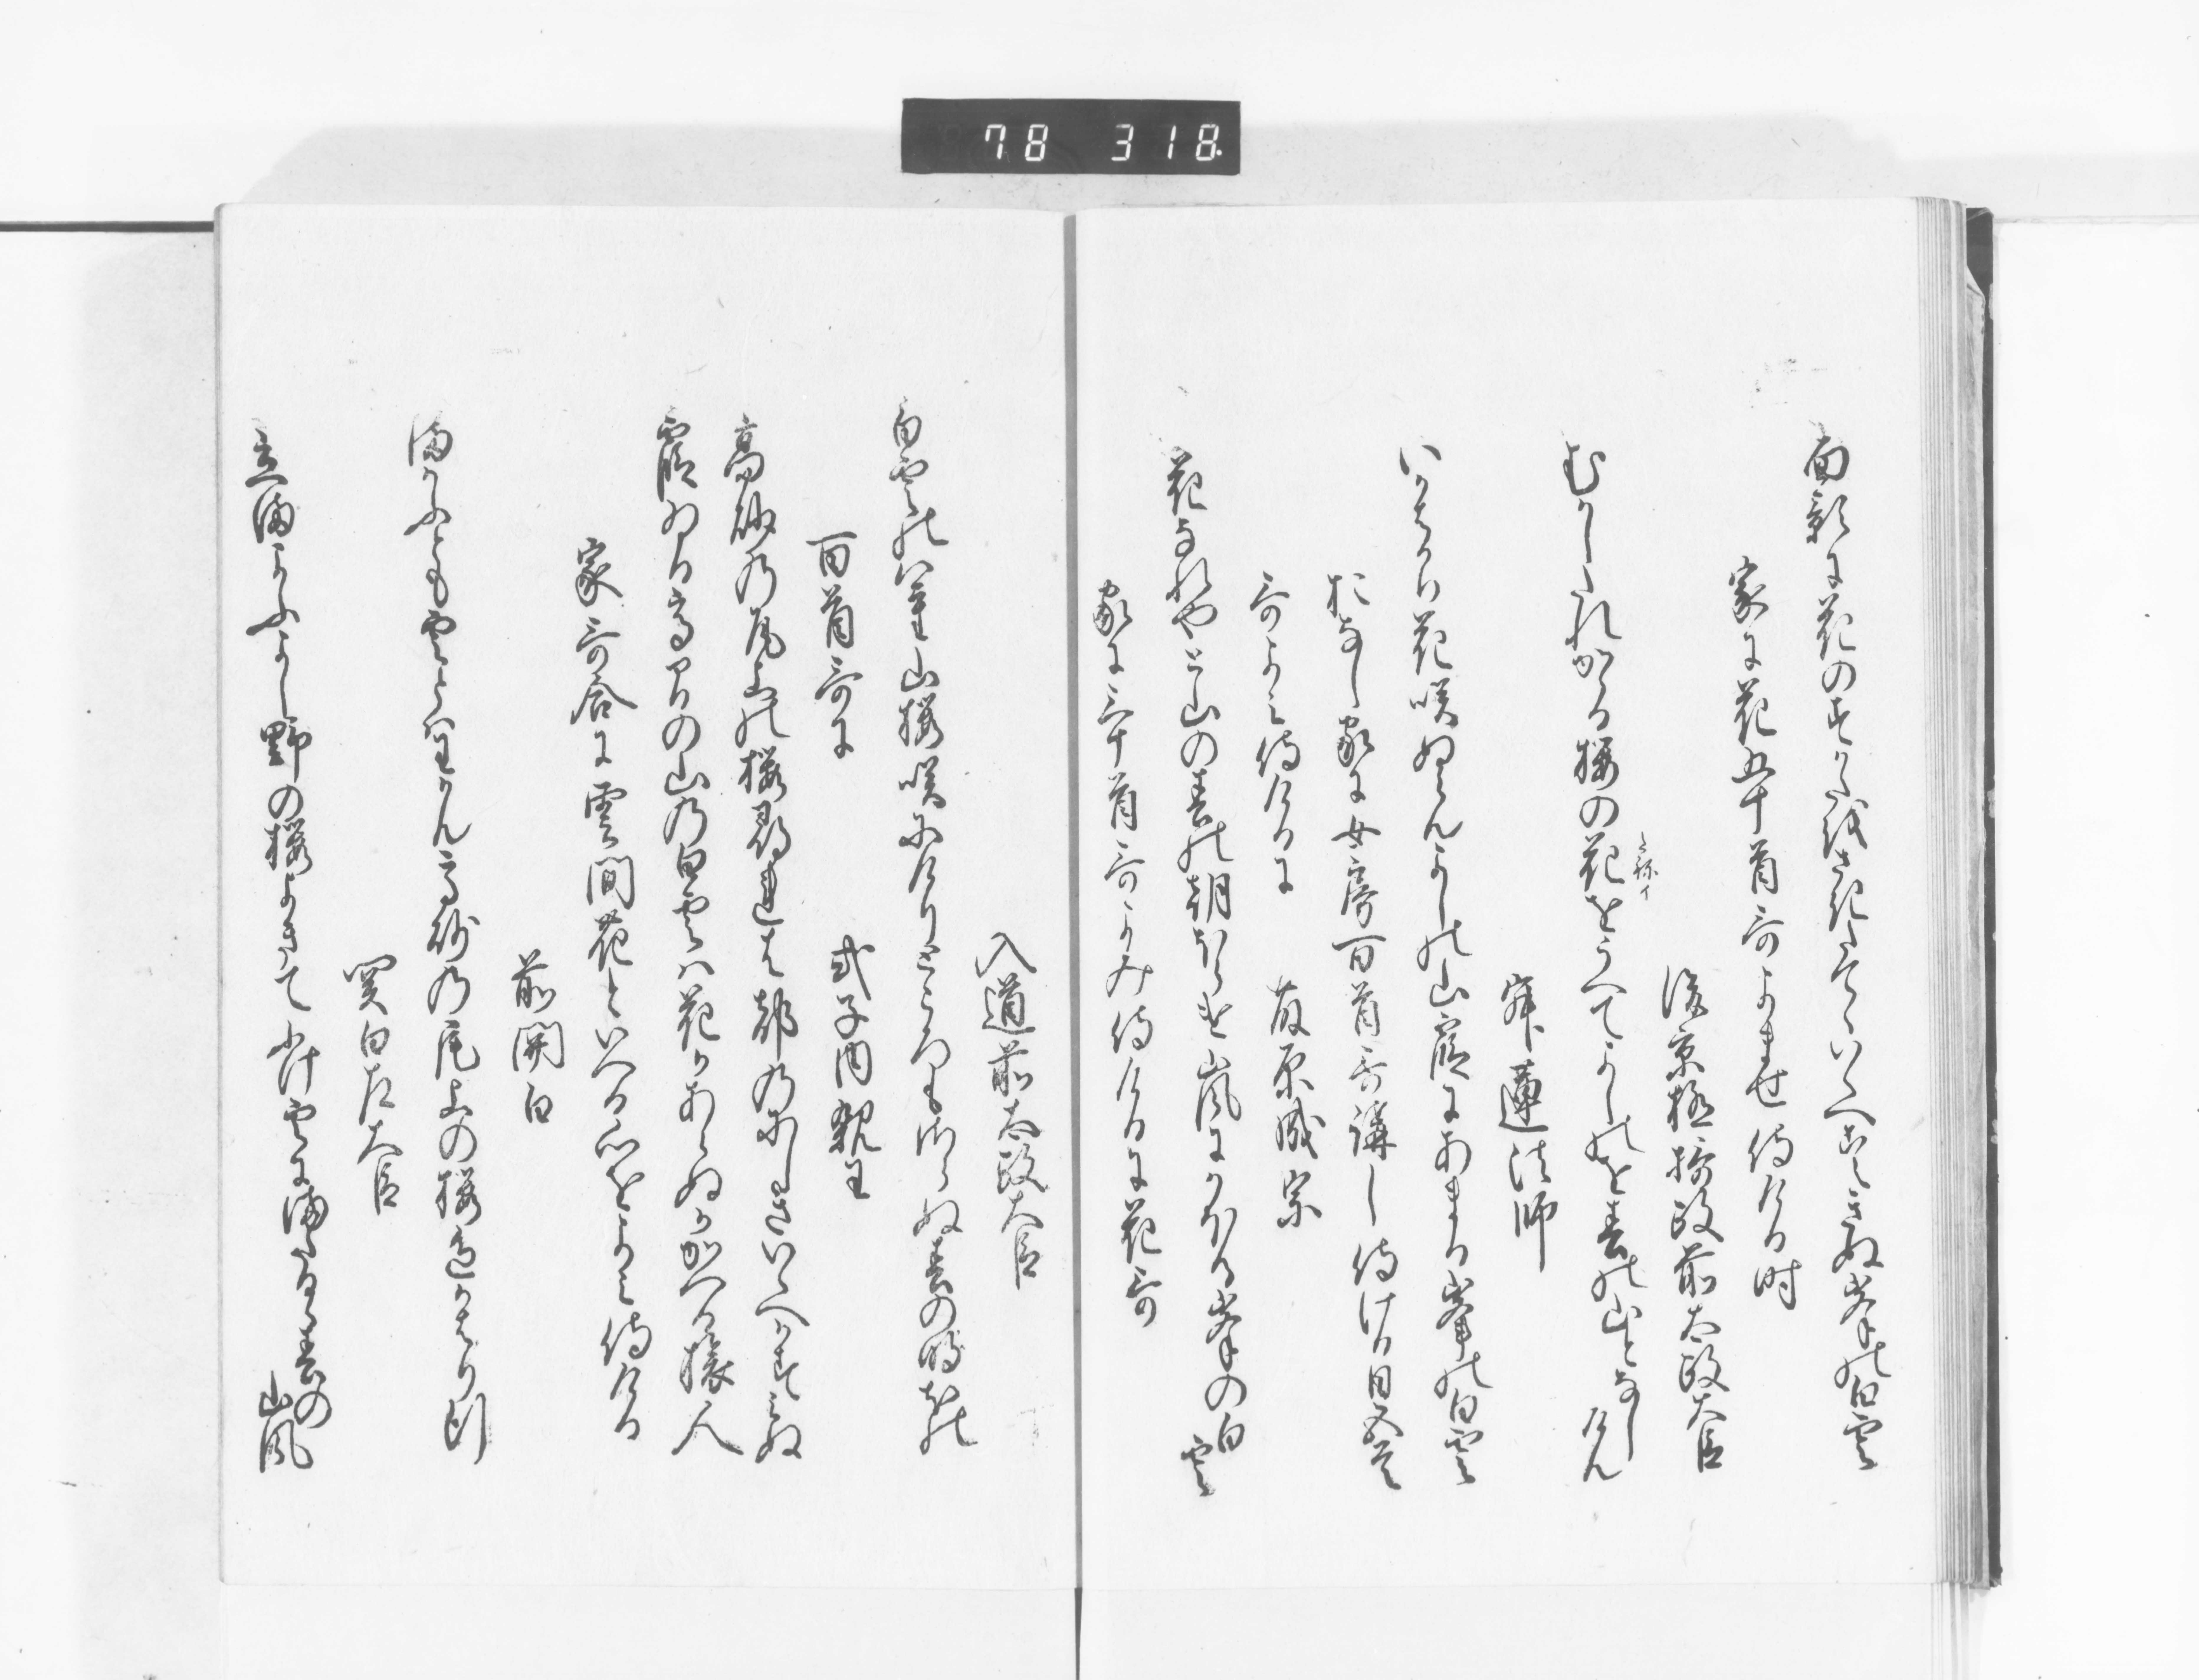 78 318
面影に花のすかたをさきたてゝいくへこえきぬ峯の白雲
家に花五十首哥よませ侍ける時
後京極摂政前太政大臣
むかしたれかゝる桜の花をうへてよしのを春の山となしけん
たねイ
寂蓮法師
いかはかり花咲ぬらんよしの山霞にあまる峯の白雲
おなし家に女房百首哥講し侍ける日五首
哥よみ侍けるに
藤原成宗
花なれやと山の春の朝ほらけ嵐にかほる峯の白雲
家に三十首哥よみ侍けるに花哥
入道前太政大臣
白雲の八重山桜咲にけりところもさらぬ春の曙
百首哥に
式子内親王
高砂の尾上の桜尋れは都のにしきいくへかすみぬ
霞ゐる高まの山の白雲は花かあらぬかかへる旅人
家哥合に雲間花といへる心をよみ侍ける
前関白
まかふとも雲とはわかん高砂の尾上の桜色かはり行
関白左大臣
立まよふよし野の桜よきてふけ雲にまたるゝ春の山風